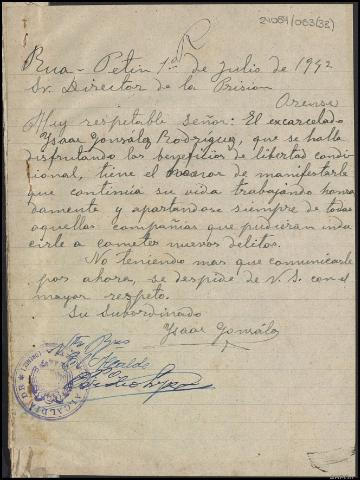 24084/003(32)
R
Rua-Petin 1º de Julio de 1942
Sr. Director de la Prision
Orense
Muy respetable señor: El excarcelado
Ysaac Gonsález Rodriguez, que se halla
disfrutando los beneficios de libertad condi
cional, tiene el honor de manifestarle
que continua su vida trabajando honra
damente y apartandose siempre de todas
aquellas compañias que pudieran indu
cirle a cometer nuevos delitos.
No teniendo mas que comunicarle
por ahora, se despide de V.S. con el
mayor respeto.
Su Subordinado
Ysaac Gonsález
Vto Bno
El Alcalde
ALCALDIA DE